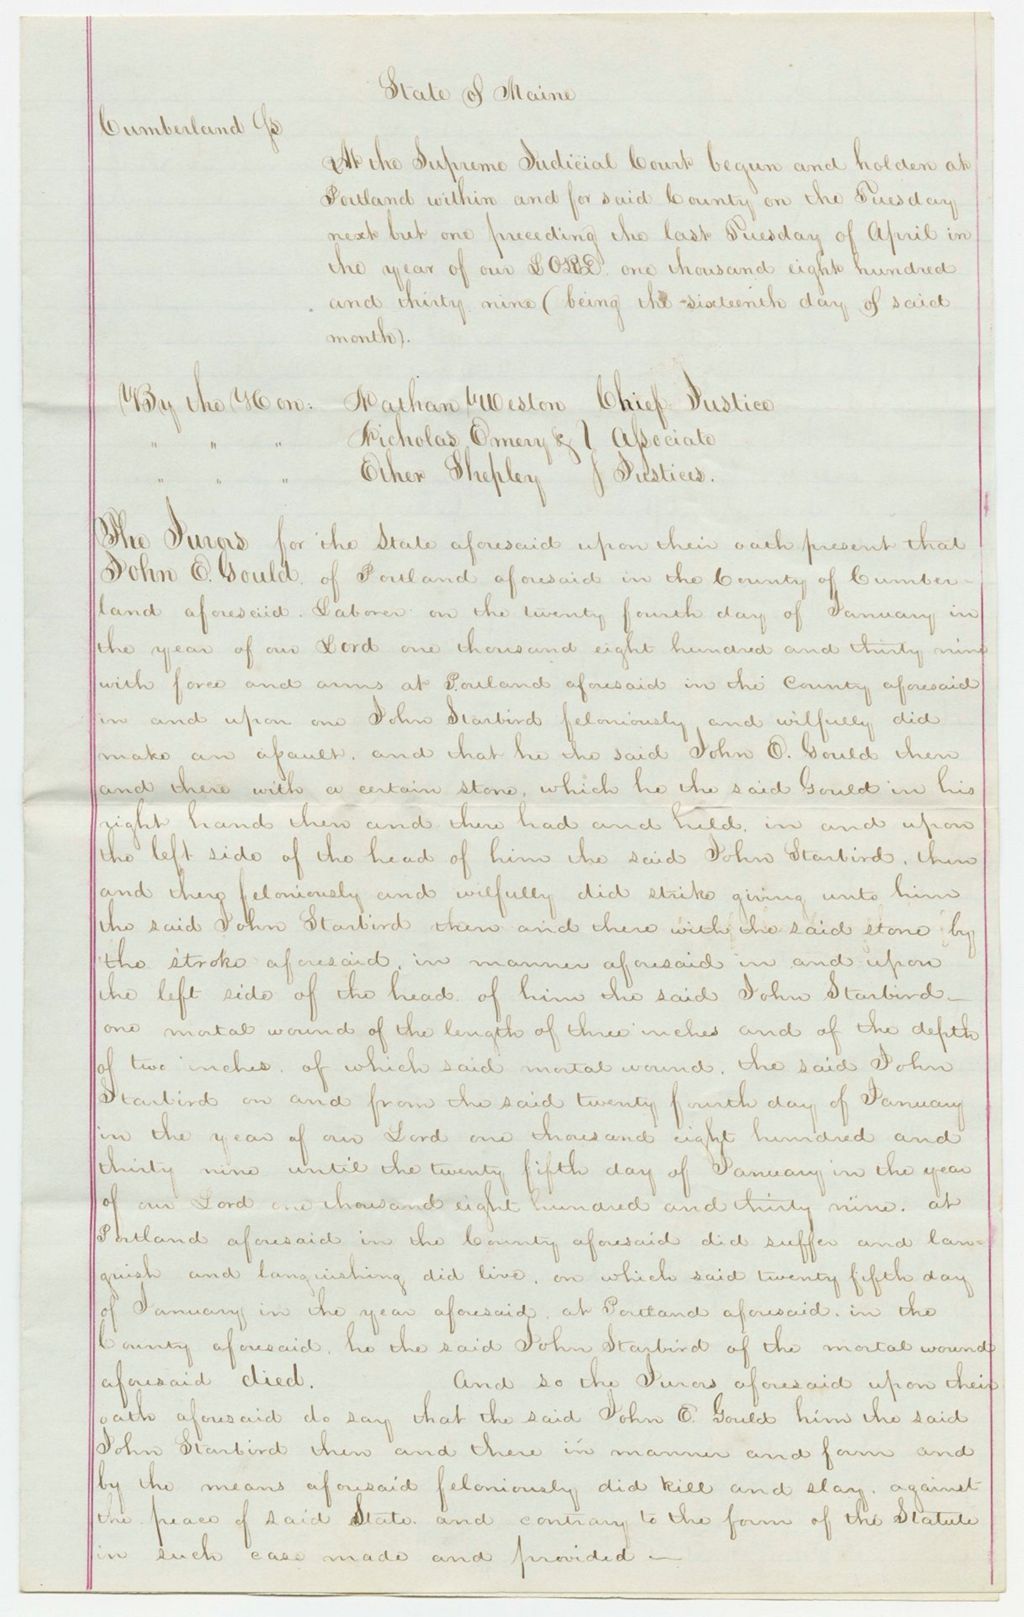 State of Maine
Cumberland Ss
At the Supreme Judicial Court begun and holden at
Portland within and for said County on the Tuesday
next but one preceding the last Tuesday of April in
the year of our LORD one thousand eight hundred
and thirty nine (being the sixteenth day of said
month).
By the Hon: Nathan Weston Chief Justice
" " " Nicholas Emery & } Associate
" " " Ether Shepley } Justices.
The Jurors for the State aforesaid upon their oath present that
John E. Gould of Portland aforesaid in the County of Cumber-
land aforesaid. Laborer on the twenty fourth day of January in
the year of our Lord one thousand eight hundred and thirty nine
with force and arms at Portland aforesaid in the County aforesaid
in and upon one John Starbird feloniously and wilfully did
make an assault. and that he the said John E. Gould then
and there with a certain stone, which he the said Gould in his
right hand then and there had and held, in and upon
the left side of the head of him the said John Starbird, then
and there feloniously and wilfully did strike giving unto him
the said John Starbird then and there with the said stone by
the stroke aforesaid, in manner aforesaid in and upon
the left side of the head of him the said John Starbird —
one mortal wound of the length of three inches and of the depth
of two inches, of which said mortal wound, the said John
Starbird on and from the said twenty fourth day of January
in the year of our Lord one thousand eight hundred and
thirty nine until the twenty fifth day of January in the year
of our Lord one thousand eight hundred and thirty nine. at
Portland aforesaid in the County aforesaid did suffer and lan-
guish and languishing did live, on which said twenty fifth day
of January in the year aforesaid, at Portland aforesaid. in the
County aforesaid, he the said John Starbird of the mortal wound
aforesaid died. And so the Jurors aforesaid upon their
oath aforesaid do say that the said John E. Gould him the said
John Starbird then and there in manner and form and
by the means aforesaid feloniously did kill and slay, against
the peace of said State. and contrary to the form of the Statute
in such case made and provided —